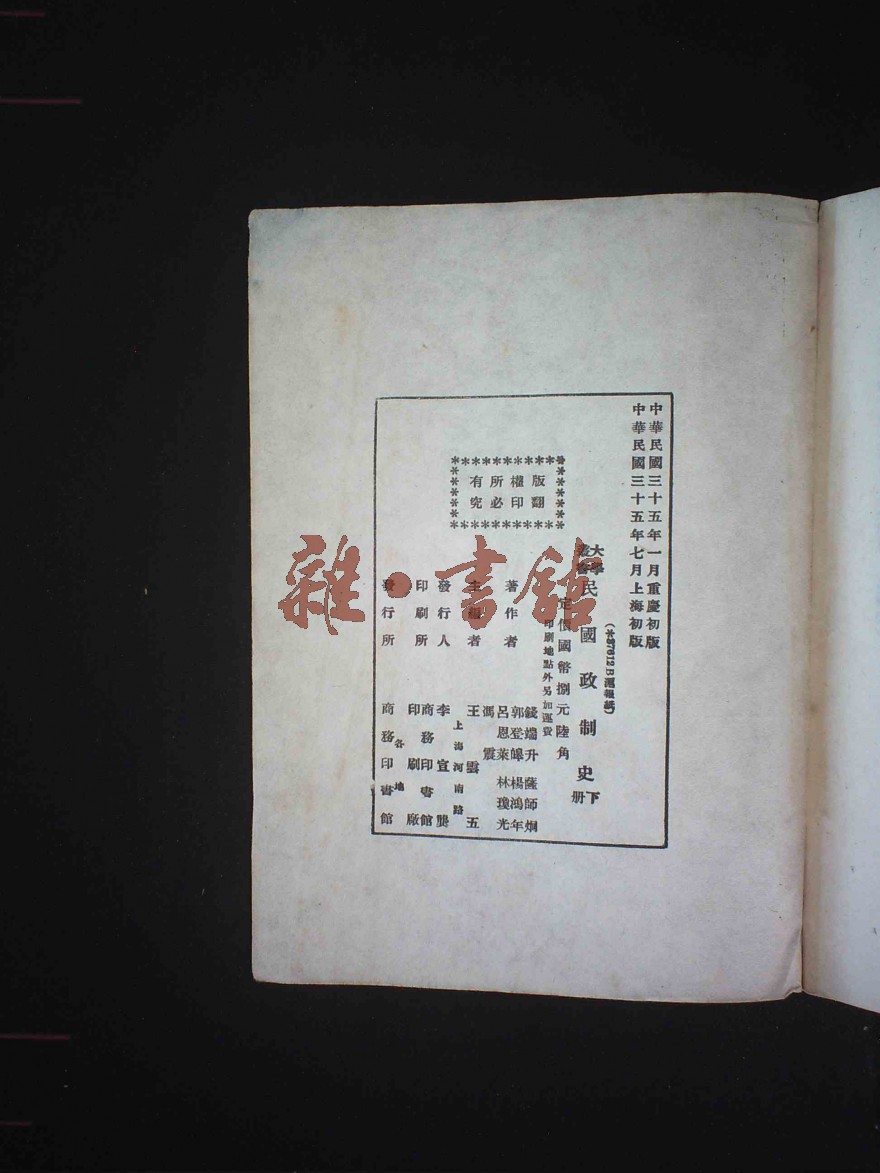 中華民國三十五年一月重慶初版
中華民國三十五年七月上海初版
(*37612B滬報紙)
大學叢書 民國政制史 下册
定價國幣捌元陸角
印刷地點外另加運費
著作者 錢端升 薩師炯 郭登皞 楊鴻年 呂恩萊 林瓊光 馮震
主編者 王雲五
上海河南路
發行人 李宣龔
印刷所 商務印書館印刷廠
各地
發行所 商務印書館
版權所有
翻印必究
雜·書館